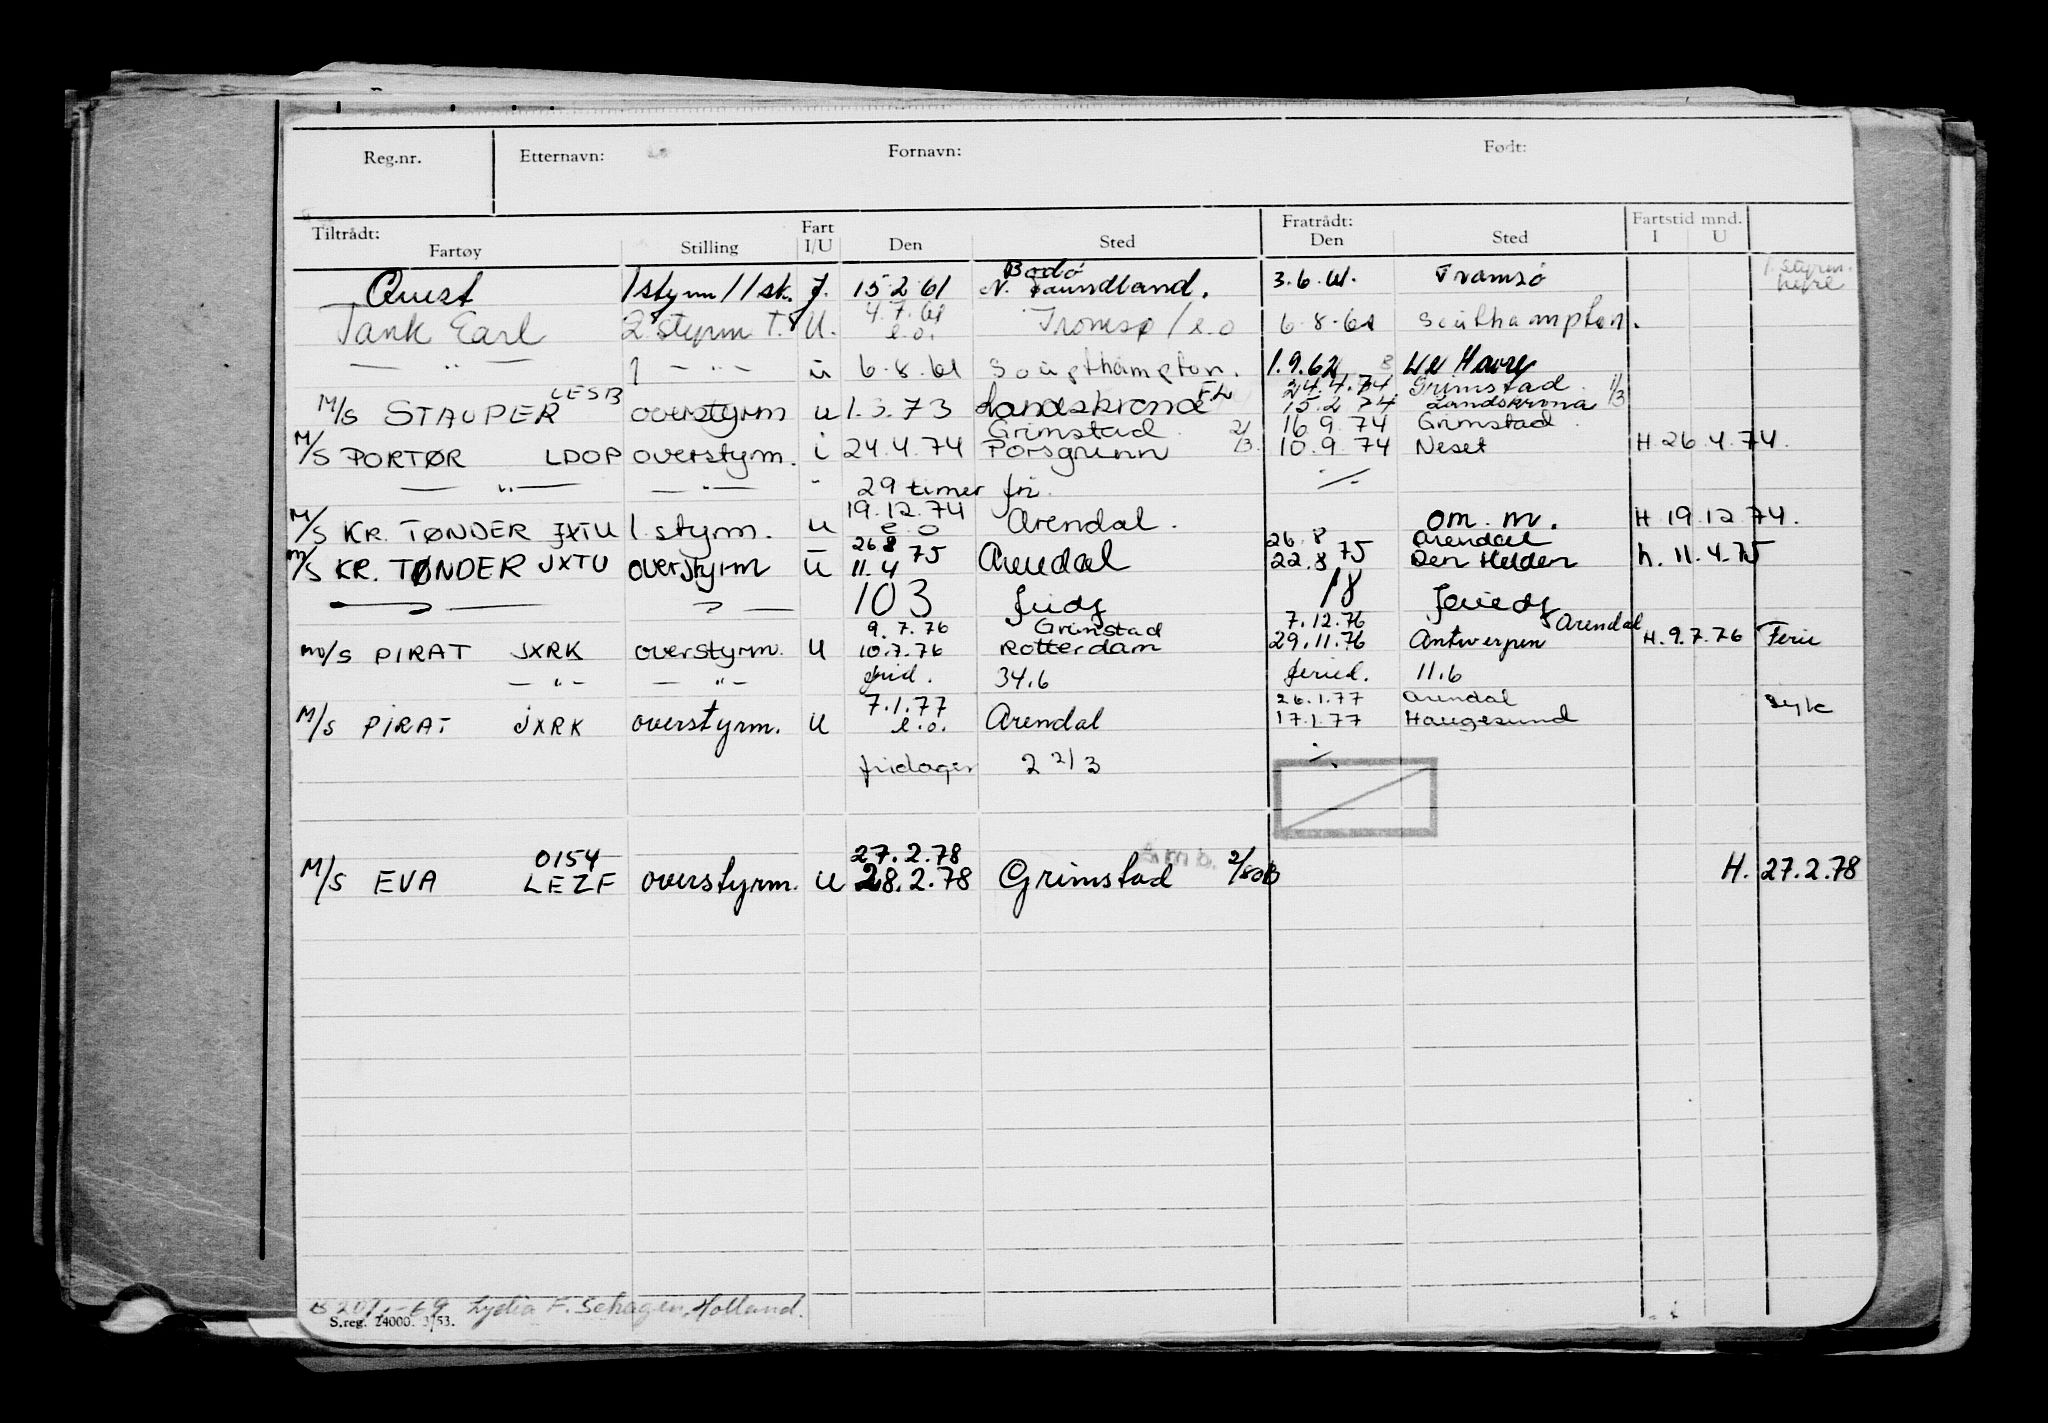 Reg.nr. Etternavn: Fornavn: Født:
Tiltrådt: Fart Fratrådt: Fartstid mnd.
Fartøy Stilling I/U Den Sted Den Sted I U
Bodö
Quest 1 styrm / 1 sk. J. 15.2.61 N. Faundland. 3.6.61. Tromsö 1 styrm.
4.7.61
Tank Earl 2 styrm T. U. e.o. Tromsø / e.o 6.8.61 Southampton.
— " — 1 — " — u 6.8.61 Soupthampton. 1.9.62 Le Havre
LESB 24.4.74 Grimstad. 1/3
M/S STAUPER overstyrm u 1.3.73 Landskrona 15.2.74 Landskrona
Grimstad. 2/3. 16.9.74 Grimstad.
M/S PORTØR LDOP overstyrm. i 24.4.74 Porsgrunn 10.9.74 Neset H. 26.4.74.
— " — — " — " 29 timer fri. ./.
19.12.74
M/S KR. TØNDER JXTU 1 styrm. u e.o Arendal. om. m. H. 19.12.74.
26.8 26.8 Arendal
M/S KR. TØNDER JXTU overstyrm u 11.4 75 Arendal 22.8 75 Den Helder h. 11.4.75
103 fridg 18 feriedg
9.7.76 Grimstad 7.12.76 Arendal
M/S PIRAT JXRK overstyrm. U 10.7.76 Rotterdam 29.11.76 Antwerpen H. 9.7.76 Ferie
— " — — " — frid. 34.6 feried. 11.6
7.1.77 26.1.77 Arendal syk
M/S PIRAT JXRK overstyrm. U e.o. Arendal 17.1.77 Haugesund
fridager 2 2/3 ./.
0154 27.2.78
M/S EVA LEZF overstyrm. U 28.2.78 Grimstad H. 27.2.78
Lydia F. Schagen, Holland.
S.reg. 24000. 3/53.